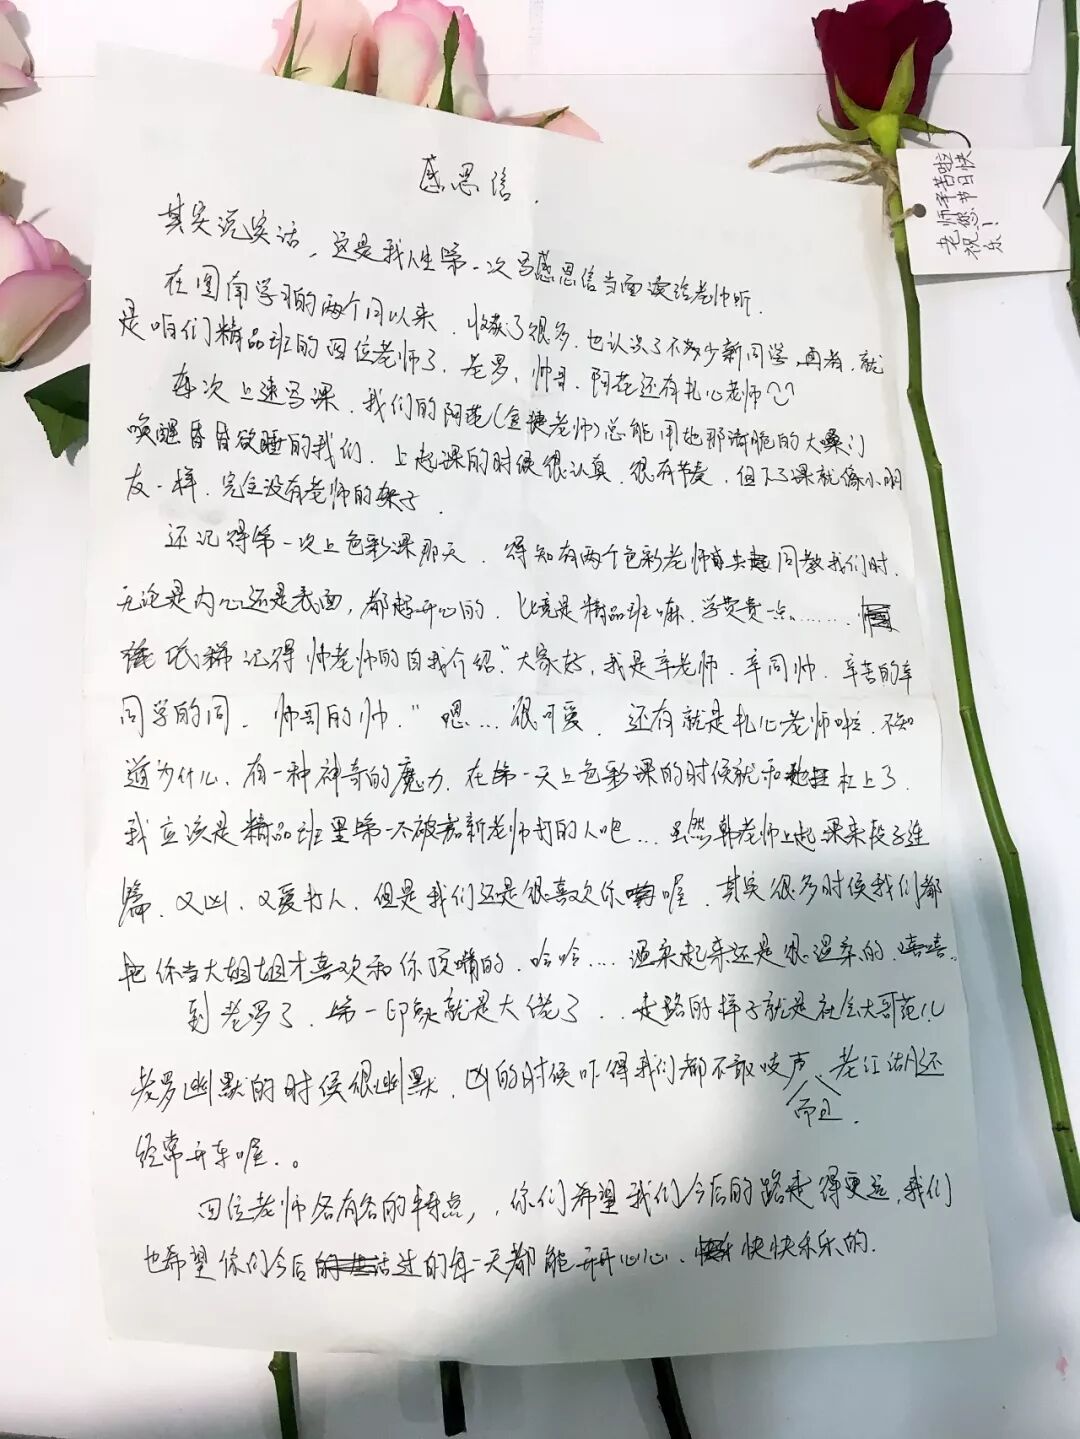 感恩信.
其实说实话，这是我人生第一次写感恩信当面读给老师听.
在国南学习的两个月以来、收获了很多.也认识了不多少新同学,再者、就
是咱们精品班的四位老师了、老罗、帅哥、阿花还有扎心老师
每次上速写课、我们的阿花(老师)总能用她那清脆的大嗓门
唤醒昏昏欲睡的我们、上起课的时候很认真、很有节奏、但下了课就像小朋
友一样、完全没有老师的架子.
还记得第一次上色彩课那天、得知有两个色彩老师共同教我们时、
无论是内心还是表面，都超开心的、比竟是精品班嘛、学费贵一点……
依稀记得帅老师的自我介绍“大家好，我是辛老师、辛同帅、辛苦的辛
同学的同、帅哥的帅.”嗯…很可爱、还有就是扎心老师啦、不知
道为什么、有一种神奇的魔力、在第一天上色彩课的时候就和她杠上了、
我应该是精品班里第一个被新老师打的人吧…虽然韩老师上起课来段子连
篇、又凶、又爱打人、但是我们还是很喜欢你喔、其实很多时候我们都
把你当大姐姐才喜欢和你顶嘴的、哈哈…温柔起来还是很温柔的、嘻嘻..
到老罗了、第一印象就是大佬了..走路的样子就是社会大哥范儿
老罗幽默的时候很幽默、凶的时候吓得我们都不敢吱声、而且老江湖还
经常开车喔.。
四位老师各有各的特点，你们希望我们今后的路走得更远、我们
也希望你们今后过的每一天都能开开心心、快快乐乐的.
老师辛苦啦
祝您节日快
乐！